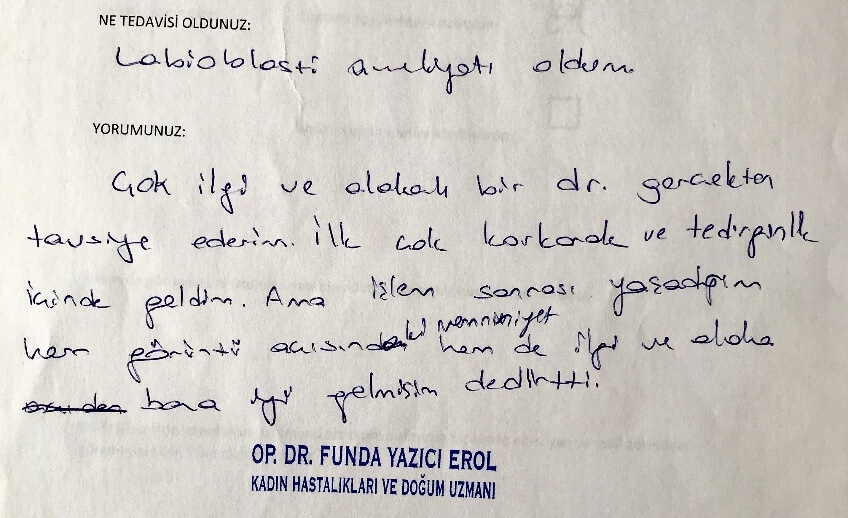 NE TEDAVİSİ OLDUNUZ:
Labioblasti ameliyatı oldum.
YORUMUNUZ:
Çok ilgi ve alakalı bir dr. gerçekten
tavsiye ederim. İlk çok korkarak ve tedirginlik
içinde geldim. Ama işlem sonrası yaşadığım
hem görüntü açısındaki memnuniyet hem de ilgi ve alaka
bana iyi gelmişim dedirtti.
OP. DR. FUNDA YAZICI EROL
KADIN HASTALIKLARI VE DOĞUM UZMANI